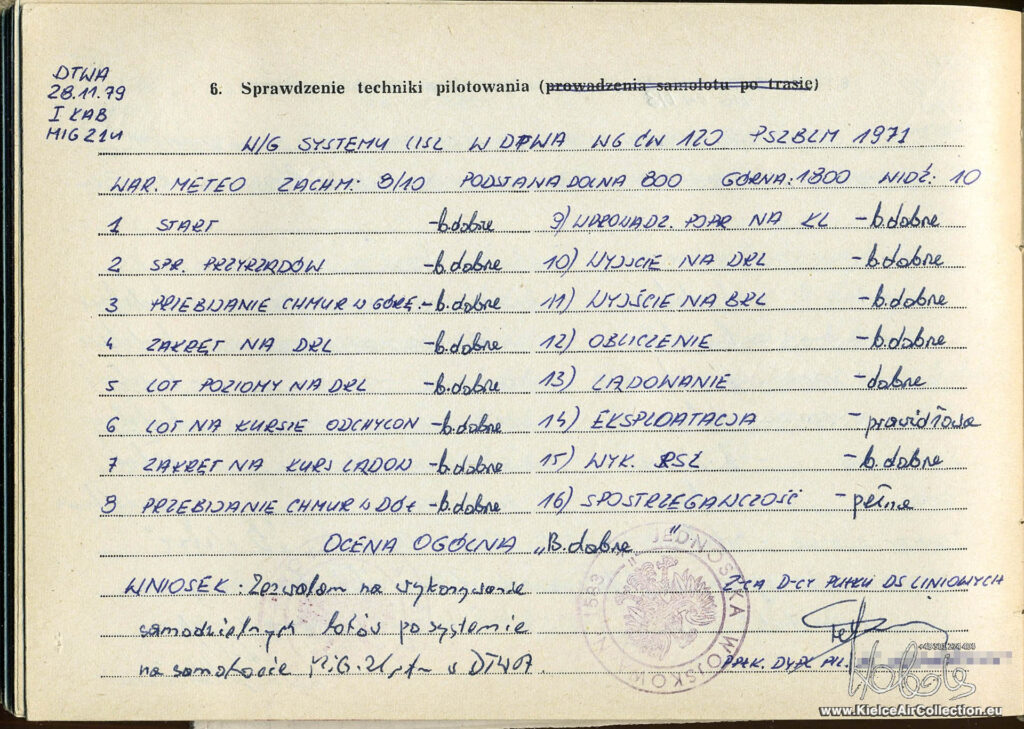 DTWA
28.11.79
I KAB
MIG 21U
6. Sprawdzenie techniki pilotowania (prowadzenia samolotu po trasie)
W/G SYSTEMU USL W DTWA WG ĆW 120 PSZBLM 1971
WAR. METEO ZACHM: 8/10 PODSTAWA DOLNA 800 GÓRNA: 1800 WIDŹ: 10
1 START - b.dobre
2 SPR. PRZYRZĄDÓW - b.dobre
3 PRZEBIJANIE CHMUR W GÓRĘ - b.dobre
4 ZAKRĘT NA DRL - b.dobre
5 LOT POZIOMY NA DRL - b.dobre
6 LOT NA KURSIE ODCHYLON - b.dobre
7 ZAKRĘT NA KURS LĄDOW - b.dobre
8 PRZEBIJANIE CHMUR W DÓŁ - b.dobre
9) WPROWADZ. POPR NA KL - b.dobre
10) WYJŚCIE NA DRL - b.dobre
11) WYJŚCIE NA BRL - b.dobre
12) OBLICZENIE - b.dobre
13) LĄDOWANIE - dobre
14) EKSPLOATACJA - prawidłowa
15) WYK. RSL - b.dobre
16) SPOSTRZEGAWCZOŚĆ - pełne
OCENA OGÓLNA „B.dobre"
WNIOSEK: Zezwalam na wykonywanie
samodzielnych lotów po systemie
na samolocie MiG-21 w DTWA.
Z-CA D-CY PUŁKU DS LINIOWYCH
PPŁK. DYPL. PIL.
JEDNOSTKA WOJSKOWA Nr
www.KielceAirCollection.eu